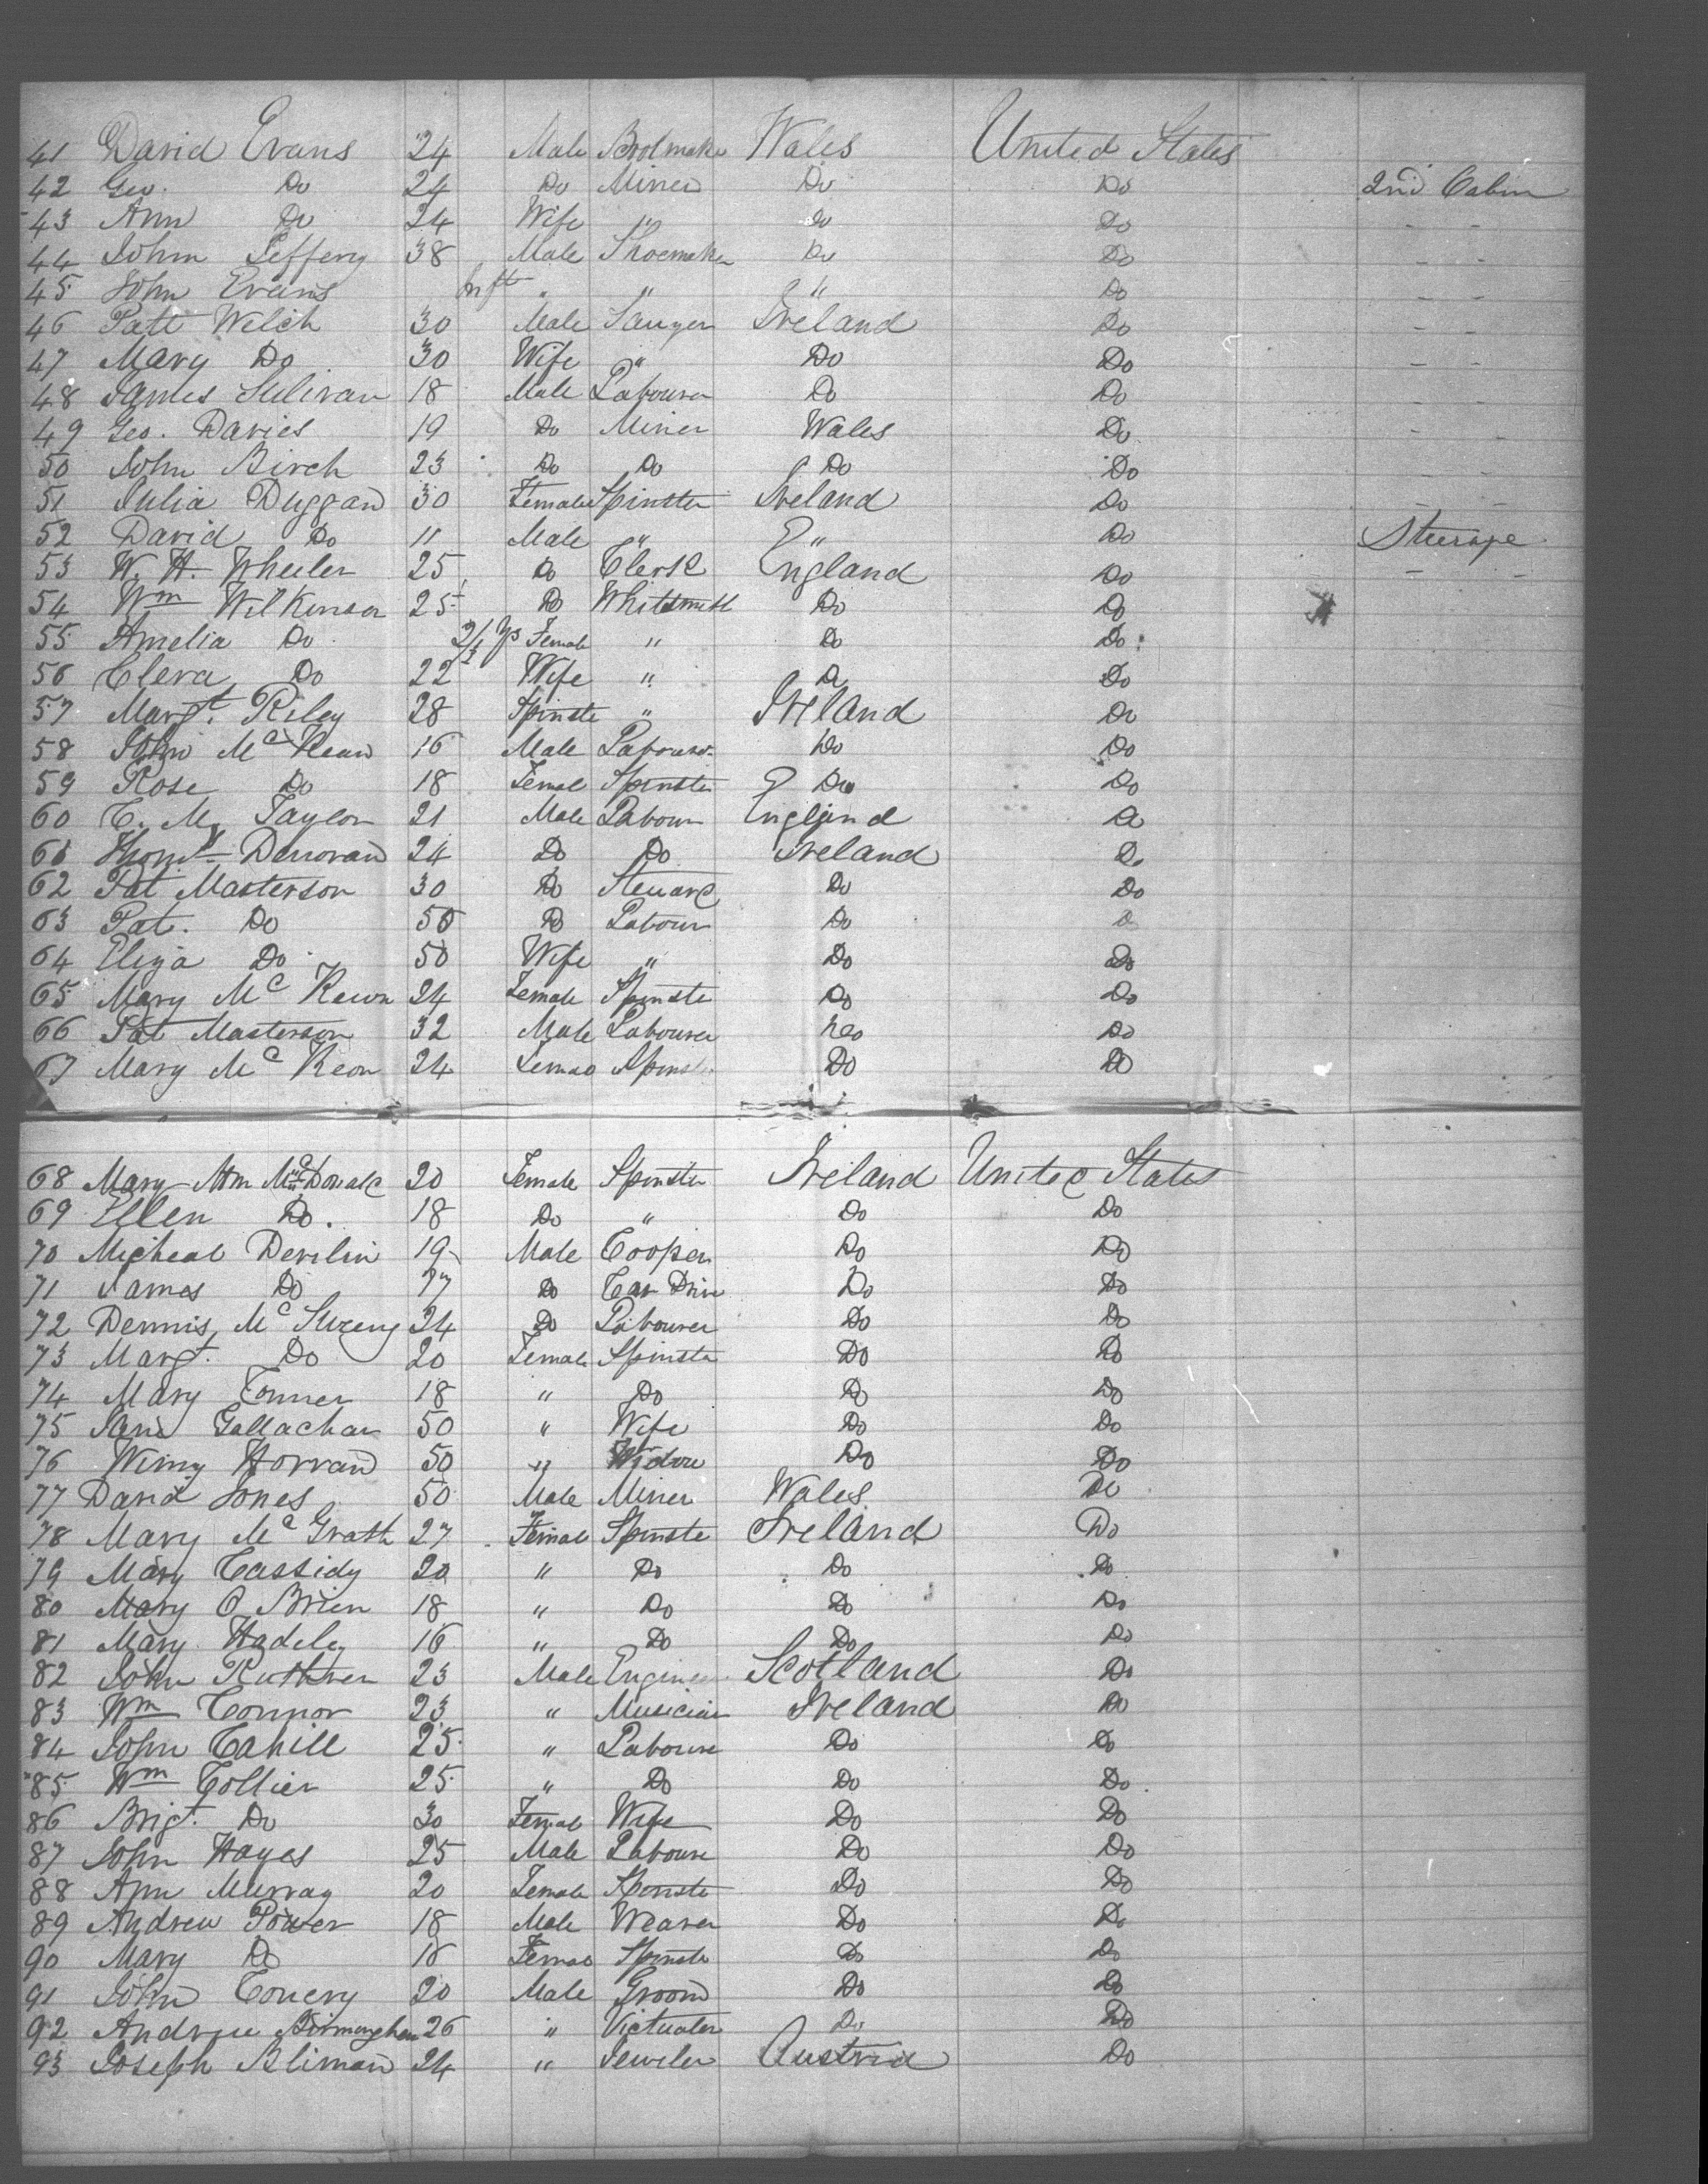 41 David Evans 24 Male Wales United States
42 Geo. Do 24 Do Miner Do Do 2nd Cabin
43 Ann Do 24 Wife " Do Do - -
44 John Jeffery 38 Male Shoemaker Do Do - -
45 John Evans Inft " " " Do - -
46 Patt Welch 30 Male Ireland Do - -
47 Mary Do 30 Wife " Do Do - -
48 James Sulivan 18 Male Labourer Do Do - -
49 Geo. Davies 19 Do Miner Wales Do - -
50 John Birch 23 Do Do Do Do - -
51 Julia Duggan 30 Female Spinster Ireland Do - -
52 David Do 11 Male " " Do Steerage
53 W. H. Wheeler 25 Do Clerk England Do - -
54 Wm Wilkinson 25 Do Whitsmith Do Do
55 Amelia Do Female " Do Do
56 Do 22 Wife " Do Do
57 Margt. Riley 28 Spinste " Ireland Do
58 John Mc Kean 16 Male Labourer Do Do
59 Rose Do 18 Femal Spinster Do Do
60 C. M. Taylor 21 Male Labour England Do
61 Donovan 24 Do Do Ireland Do
62 Pat Masterson 30 Do Steward Do Do
63 Pat. Do 50 Do Labour Do Do
64 Eliza Do 50 Wife " Do Do
65 Mary Mc Keown 24 Female Spinste Do Do
66 Pat Masterson 32 Male Labourer Do Do
67 Mary Mc Keon 24 Femae Spinst Do Do
68 Mary Ann McDonald 20 Female Spinster Ireland United States
69 Ellen Do. 18 Do " Do Do
70 Micheal Devilin 19 Male Cooper Do Do
71 James Do 17 Do Car Drive Do Do
72 Dennis Mc Sweeny 24 Do Labourer Do Do
73 Margt. Do 20 Female Spinster Do Do
74 Mary Conner 18 " Do Do Do
75 Jane Gallachar 50 " Wife Do Do
76 Winny Horran 50 " Widow Do Do
77 David Jones 50 Male Miner Wales Do
78 Mary Mc Grath 27 Female Spinste Ireland Do
79 Mary Cassidy 20 " Do Do Do
80 Mary O Brien 18 " Do Do Do
81 Mary Hadely 16 " Do Do Do
82 John Ruthven 23 Male Engineer Scotland Do
83 Wm Connor 23 " Musician Ireland Do
84 John Cahill 25 " Laboure Do Do
85 Wm Collier 25 " Do Do Do
86 Brigt. Do 30 Female Wife Do Do
87 John Hayes 25 Male Laboure Do Do
88 Ann Murray 20 Female Spinste Do Do
89 Andrew Power 18 Male Weaver Do Do
90 Mary Do 18 Femae Spinste Do Do
91 John Conery 20 Male Groom Do Do
92 Andrew Birmingham 26 " Victualer Do Do
93 Joseph Bliman 24 " Jeweler Austria Do